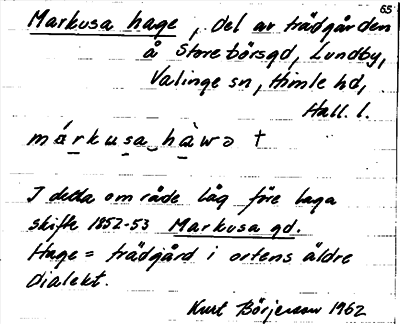 65
Markusa hage, del av trädgården
å Storebörsgd, Lundby,
Valinge sn, Himle hd,
Hall. l.
márkusa hàwə †
I detta område låg före laga
skifte 1852-53 Markusa gd.
Hage = trädgård i ortens äldre
dialekt.
Kurt Börjesson 1962